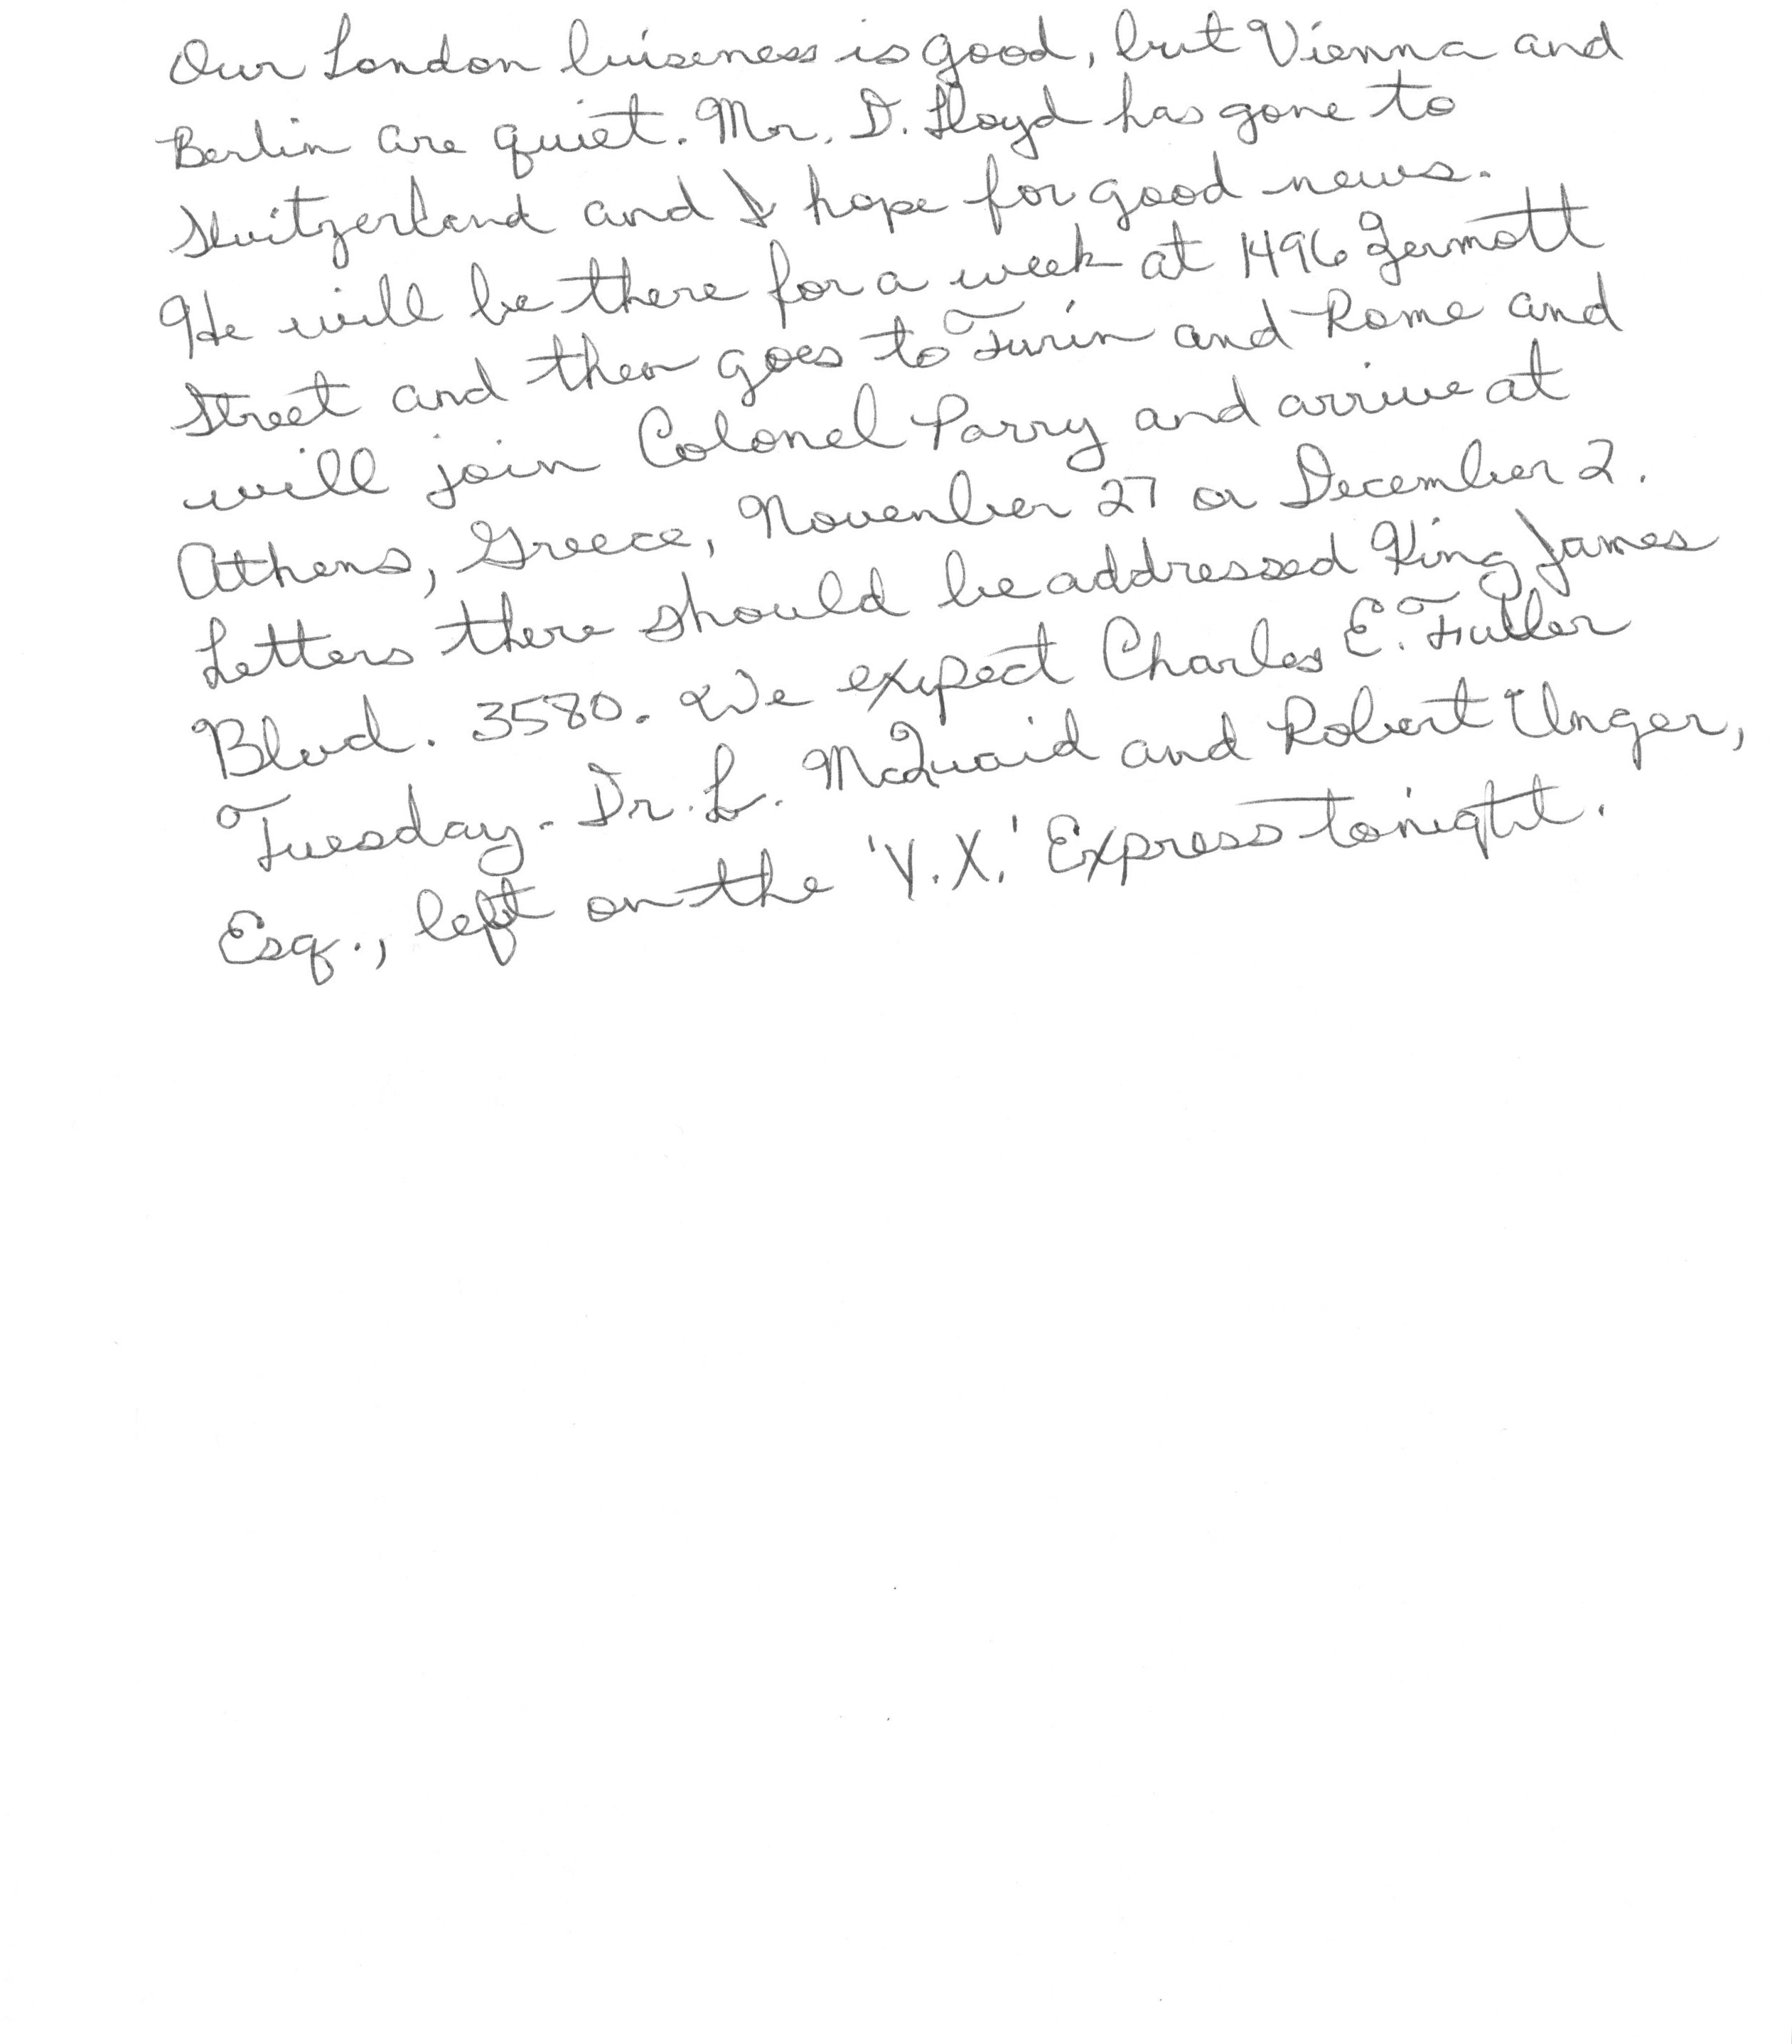 Our London buiseness is good, but Vienna and
Berlin are quiet. Mr. D. Lloyd has gone to
Switzerland and I hope for good news.
He will be there for a week at 1496 Zermott
Street and then goes to Turin and Rome and
will join Colonel Parry and arrive at
Athens, Greece, November 27 or December 2.
Letters there should be addressed King James
Blvd. 3580. We expect Charles E. Fuller
Tuesday. Dr. L. McQuaid and Robert Unger,
Esq., left on the 'Y.X.' Express tonight.